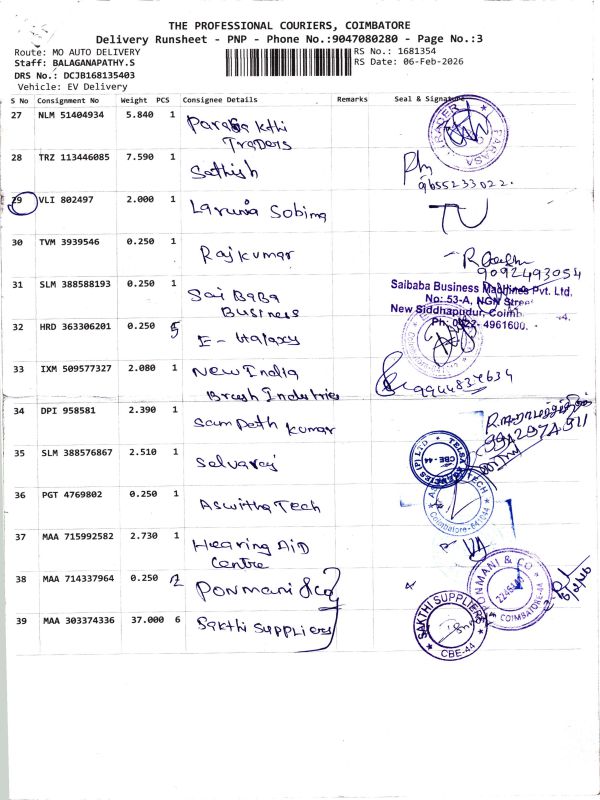 THE PROFESSIONAL COURIERS, COIMBATORE
Delivery Runsheet - PNP - Phone No.:9047080280 - Page No.:3
Route: MO AUTO DELIVERY
RS No.: 1681354
Staff: BALAGANAPATHY.S
RS Date: 06-Feb-2026
DRS No.: DCJB168135403
Vehicle: EV Delivery
S No Consignment No Weight PCS Consignee Details Remarks Seal & Signature
27 NLM 51404934 5.840 1 Parasakthi
Traders
28 TRZ 113446085 7.590 1 Sathish
Ph
9655233022.
29 VLI 802497 2.000 1 Sobima
30 TVM 3939546 0.250 1 Rajkumar
9092493054
31 SLM 388588193 0.250 1 Sai BaBa
Business
Saibaba Business Machines Pvt. Ltd.
No: 53-A, NGN Street
New Siddhapudur, Coimb
Ph: 0422- 4961600.
32 HRD 363306201 0.250 5 E-Galaxy
33 IXM 509577327 2.080 1 New India
Brush Industries
9944834634
34 DPI 958581 2.390 1 Sampath kumar
35 SLM 388576867 2.510 1 Selvaraj
CBE-44
36 PGT 4769802 0.250 1 Aswitha Tech
TECH
Coimbatore-641044
37 MAA 715992582 2.730 1 Hearing AiD
Centre
38 MAA 714337964 0.250 2 Ponmani & co
PONMANI & CO
COIMBATORE-44
39 MAA 303374336 37.000 6 Sakthi Suppliers
SAKTHI SUPPLIERS
CBE-44